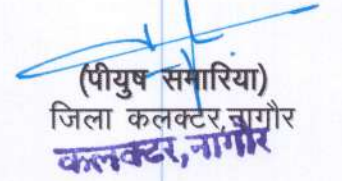 (पीयुष समारिया)
जिला कलक्टर, नागौर
कलक्टर, नागौर